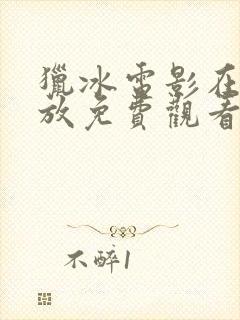 獵冰電影在
放免費觀看
不醉1